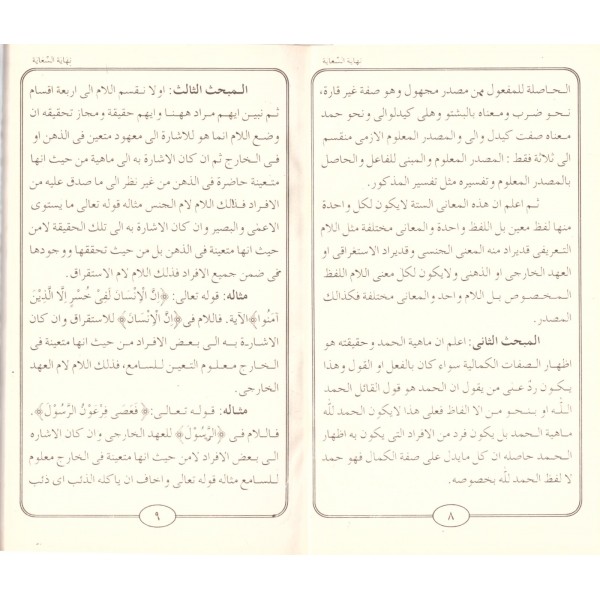 نهاية السعاية
الحاصلة للمفعول من مصدر مجهول وهو صفة غير قارة،
نحو ضرب ومعناه بالبشتو وهلى كيدلوالى ونحو حمد
معناه صفت كيدل والى والمصدر المعلوم الازمى منقسم
الى ثلاثة فقط: المصدر المعلوم والمبنى للفاعل والحاصل
بالمصدر المعلوم وتفسيره مثل تفسير المذكور.
ثم اعلم ان هذه المعانى الستة لايكون لكل واحدة
منها لفظ معين بل اللفظ واحدة والمعانى مختلفة مثل اللام
التعريفى قديراد منه المعنى الجنسى وقديراد الاستغراقى او
العهد الخارجى او الذهنى ولايكون لكل معنى اللام اللفظ
المخصوص بل اللام واحد والمعانى مختلفة فكذالك
المصدر.
المبحث الثانى: اعلم ان ماهية الحمد وحقيقته هو
اظهار الصفات الكمالية سواء كان بالفعل او القول وهذا
يكون ردّ عنى من يقول ان الحمد هو قول القائل الحمد
الله او بنحو من الا الفاظ فعلى هذا لايكون الحمد لله
ماهية الحمد بل يكون فرد من الافراد التى يكون به اظهار
الحمد حاصله ان كل مايدل على صفة الكمال فهو حمد
لا لفظ الحمد لله بخصوصه.
٨
نهاية السعاية
المبحث الثالث: اولا نقسم اللام الى اربعة اقسام
ثم نبين ايهم مراد ههنا وايهم حقيقة ومجاز تحقيقه ان
وضع اللام انما هو للاشارة الى معهود متعين فى الذهن او
فى الخارج ثم ان كان الاشارة به الى ماهية من حيث انها
متعينة حاضرة فى الذهن من غير نظر الى ما صدق عليه من
الافراد فذالك اللام لام الجنس مثاله قوله تعالى ما يستوى
الاعمى والبصير وان كان الاشارة به الى تلك الحقيقة لامن
حيث انها متعينة فى الذهن بل من حيث تحققها ووجودها
فى ضمن جميع الافراد فذلك اللام لام الاستقراق.
مثاله: قوله تعالى: ﴿إِنَّ الْإِنْسَانَ لَفِىْ خُسْرٍ إِلَّا الَّذِيْنَ
آمَنُوا﴾الآية. فاللام فى ﴿إِنَّ الْإِنْسَانَ﴾ للاستقراق و ان كان
الاشارة به الى بعض الافراد من حيث انها متعينة فى
الخارج معلوم التعين للسامع، فذلك اللام لام العهد
الخارجى.
مثاله: قوله تعالى: ﴿فَعَصٰى فِرْعَوْنُ الرَّسُوْلَ﴾.
فاللام فى ﴿الرَّسُوْلَ﴾ للعهد الخارجى وان كان الاشاره
الى بعض الافراد لامن حيث انها متعينة فى الخارج معلوم
للسامع مثاله قوله تعالى واخاف ان ياكله الذئب اى ذئب
٩